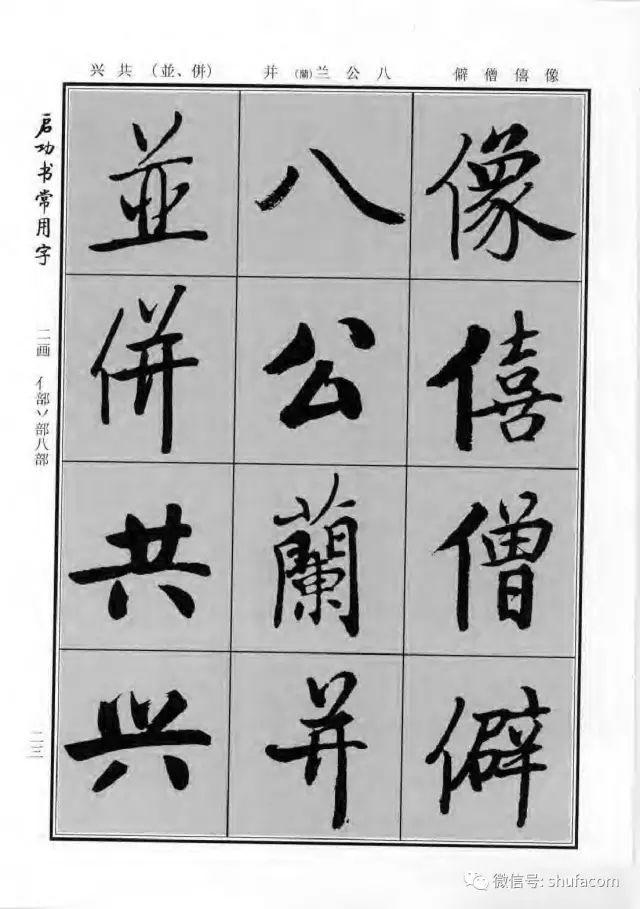 像僖僧僻
八公兰(蘭)并
(並、併)共兴
像
僖
僧
僻
八
公
蘭
并
並
併
共
兴
启功书常用字
二画 亻部丷部八部
二三
微信号: shufacom